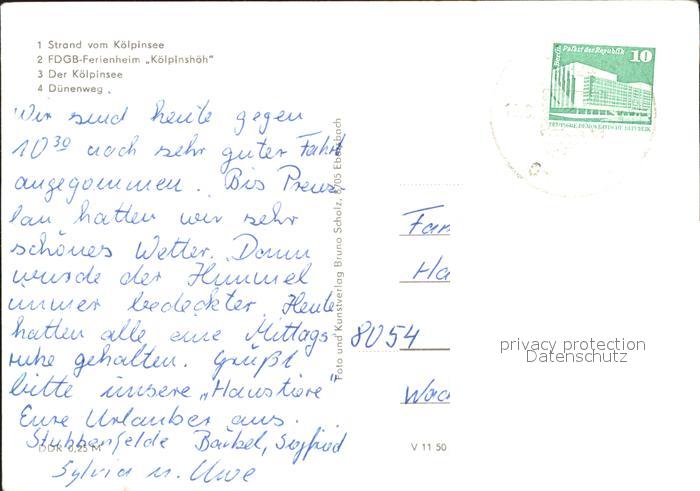 1 Strand vom Kölpinsee
2 FDGB-Ferienheim „Kölpinshöh“
3 Der Kölpinsee
4 Dünenweg
Wir sind heute gegen
10 30 nach sehr guter Fahrt
angegommen. Bis Prenz
lau hatten wir sehr
schönes Wetter. Dann
wurde der Himmel
immer bedeckter. Heute
hatten alle eine Mittags-
ruhe gehalten. Grüßt
bitte unsere „Haustiere“
Eure Urlauber aus
Stubbenfelde Bärbel, Siegfried
Sylvia u. Uwe
DDR 0,25 M
V 11 50
Foto und Kunstverlag Bruno Scholz, 8705 Ebersbach
Berlin, Palast der Republik
10
DEUTSCHE DEMOKRATISCHE REPUBLIK
Fam
Ha
8054
Wac
privacy protection
Datenschutz